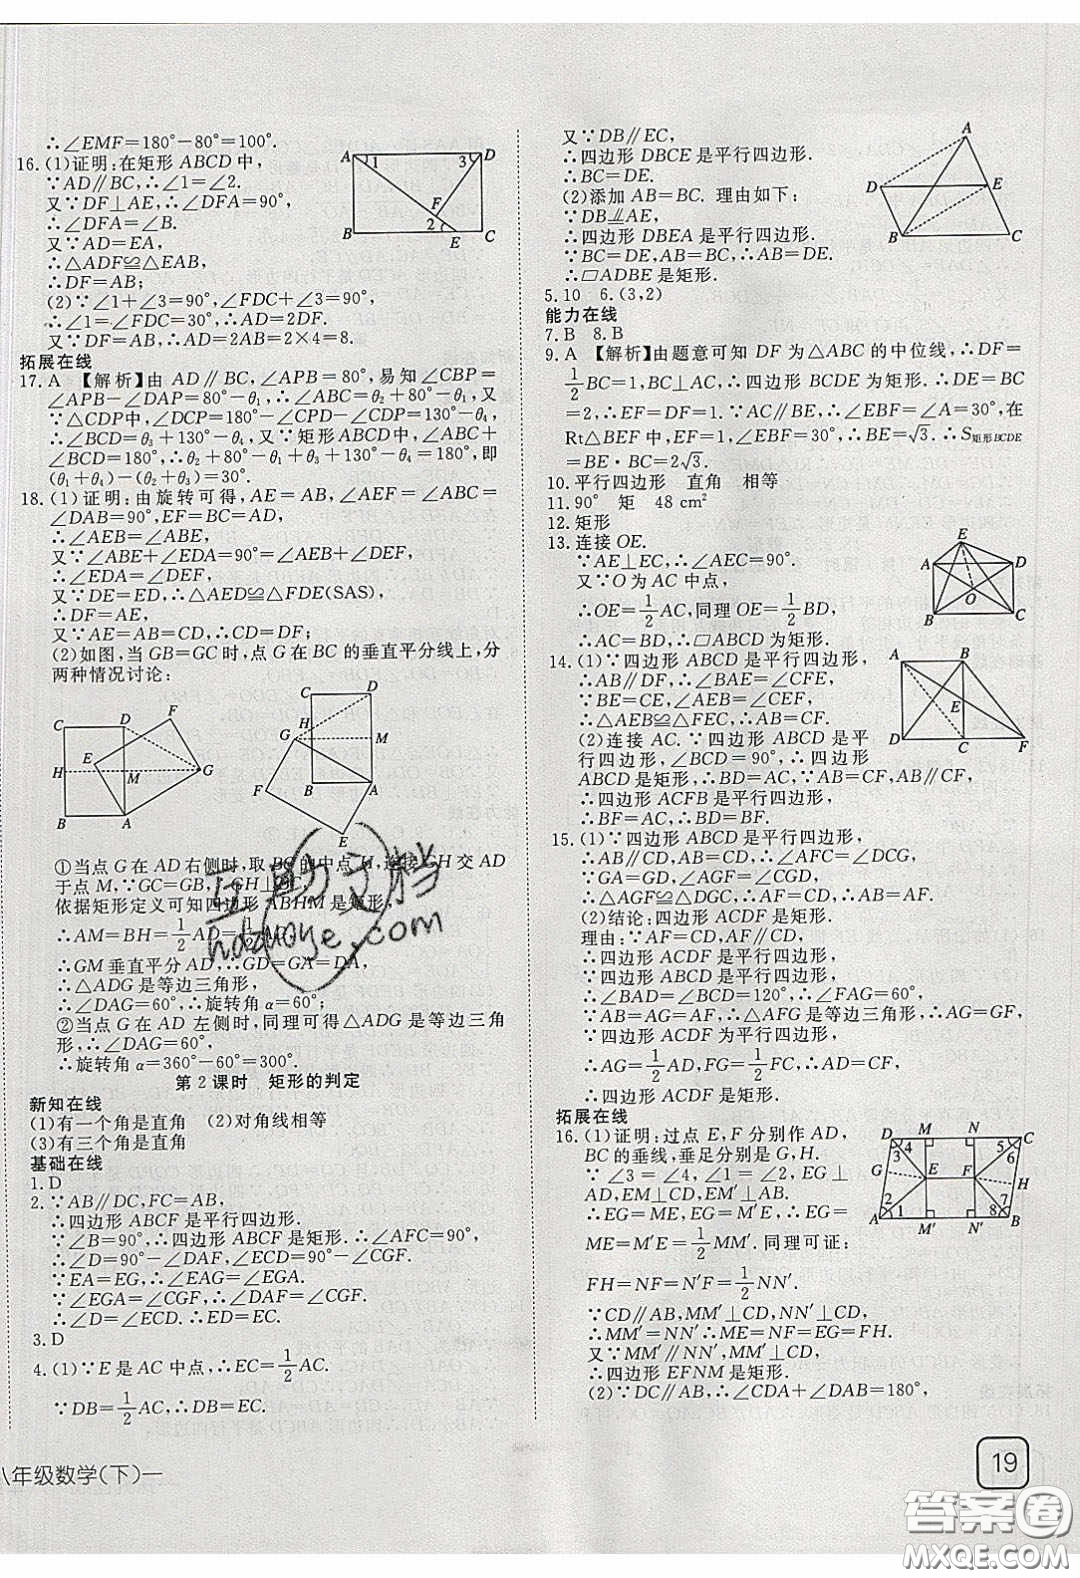 ∴∠EMF=180°-80°=100°.
16.(1)证明:在矩形 ABCD 中,
∵AD∥BC,∴∠1=∠2.
又∵DF⊥AE,∴∠DFA=90°,
∴∠DFA=∠B.
又∵AD=EA,
∴△ADF≌△EAB,
∴DF=AB;
(2)∵∠1+∠3=90°,∠FDC+∠3=90°,
∴∠1=∠FDC=30°,∴AD=2DF.
又∵DF=AB,∴AD=2AB=2×4=8.
拓展在线
17.A 【解析】由 AD∥BC,∠APB=80°,易知∠CBP=
∠APB-∠DAP=80°-θ₁,∴∠ABC=θ₂+80°-θ₁,又
∵△CDP中,∠DCP=180°-∠CPD-∠CDP=130°-θ₄,
∴∠BCD=θ₃+130°-θ₄,又∵矩形ABCD中,∠ABC+
∠BCD=180°,∴θ₂+80°-θ₁+θ₃+130°-θ₄=180°,即
(θ₁+θ₄)-(θ₂+θ₃)=30°.
18.(1)证明:由旋转可得,AE=AB,∠AEF=∠ABC=
∠DAB=90°,EF=BC=AD,
∴∠AEB=∠ABE,
又∵∠ABE+∠EDA=90°=∠AEB+∠DEF,
∴∠EDA=∠DEF,
又∵DE=ED,∴△AED≌△FDE(SAS),
∴DF=AE,
又∵AE=AB=CD,∴CD=DF;
(2)如图,当 GB=GC时,点 G 在 BC 的垂直平分线上,分
两种情况讨论:
C D F E H M G B A
D C H G M F B A E
①当点 G 在 AD 右侧时,取 BC 的中点 H,连接 GH 交 AD
于点 M,∵GC=GB,∴GH⊥BC,
依据矩形定义可知四边形 ABHM 是矩形,
∴AM=BH=1/2AD=1/2AG,
∴GM垂直平分 AD,∴GD=GA=DA,
∴△ADG 是等边三角形,
∴∠DAG=60°,∴旋转角 α=60°;
②当点 G 在 AD 左侧时,同理可得△ADG 是等边三角
形,∴∠DAG=60°,
∴旋转角 α=360°-60°=300°.
第2课时 矩形的判定
新知在线
(1)有一个角是直角 (2)对角线相等
(3)有三个角是直角
基础在线
1.D
2.∵AB∥DC,FC=AB,
∴四边形 ABCF 是平行四边形.
∵∠B=90°,∴四边形 ABCF 是矩形.∴∠AFC=90°,
∴∠D=90°-∠DAF,∠ECD=90°-∠CGF.
∵EA=EG,∴∠EAG=∠EGA.
∵∠EGA=∠CGF,∴∠DAF=∠CGF.
∴∠D=∠ECD.∴ED=EC.
3.D
4.(1)∵E 是 AC 中点,∴EC=1/2AC.
∵DB=1/2AC,∴DB=EC.
八年级数学(下)一
又∵DB∥EC,
∴四边形 DBCE 是平行四边形.
∴BC=DE.
(2)添加 AB=BC. 理由如下:
∵DB∥=AE,
∴四边形 DBEA 是平行四边形.
∵BC=DE,AB=BC,∴AB=DE.
∴□ADBE 是矩形.
5.10 6.(3,2)
能力在线
7.B 8.B
9.A 【解析】由题意可知 DF 为△ABC 的中位线,∴DF=
1/2BC=1,BC⊥AC,∴四边形 BCDE 为矩形.∴DE=BC
=2,∴EF=DF=1.∵AC∥BE,∴∠EBF=∠A=30°,在
Rt△BEF 中,EF=1,∠EBF=30°,∴BE=√3.∴S矩形BCDE
=BE·BC=2√3.
10.平行四边形 直角 相等
11.90° 矩 48 cm²
12.矩形
13.连接 OE.
∵AE⊥EC,∴∠AEC=90°.
又∵O 为 AC 中点,
∴OE=1/2AC,同理 OE=1/2BD,
∴AC=BD,∴□ABCD 为矩形.
14.(1)∵四边形 ABCD 是平行四边形,
∴AB∥DF,∴∠BAE=∠CFE,
∵BE=CE,∠AEB=∠CEF,
∴△AEB≌△FEC,∴AB=CF.
(2)连接 AC.∵四边形 ABCD 是平
行四边形,∠BCD=90°,∴四边形
ABCD 是矩形,∴BD=AC,∵AB=CF,AB∥CF,
∴四边形 ACFB 是平行四边形,
∴BF=AC,∴BD=BF.
15.(1)∵四边形 ABCD 是平行四边形,
∴AB∥CD,AB=CD,∴∠AFC=∠DCG,
∵GA=GD,∠AGF=∠CGD,
∴△AGF≌△DGC,∴AF=CD,∴AB=AF.
(2)结论:四边形 ACDF 是矩形.
理由:∵AF=CD,AF∥CD,
∴四边形 ACDF 是平行四边形,
∵四边形 ABCD 是平行四边形,
∴∠BAD=∠BCD=120°,∴∠FAG=60°,
∵AB=AG=AF,∴△AFG 是等边三角形,∴AG=GF,
∵四边形 ACDF 为平行四边形,
∴AG=1/2AD,FG=1/2CF,∴AD=CF,
∴四边形 ACDF 是矩形.
拓展在线
16.(1)证明:过点 E,F 分别作 AD,
BC 的垂线,垂足分别是 G,H.
∵∠3=∠4,∠1=∠2,EG⊥
AD,EM⊥CD,EM′⊥AB,
∴EG=ME,EG=M′E,∴EG=
ME=M′E=1/2MM′.同理可证:
FH=NF=N′F=1/2NN′.
∵CD∥AB,MM′⊥CD,NN′⊥CD,
∴MM′=NN′∴ME=NF=EG=FH.
又∵MM′∥NN′,MM′⊥CD,
∴四边形 EFNM 是矩形.
(2)∵DC∥AB,∴∠CDA+∠DAB=180°,
A 1 3 D F 2 B E C
A D E B C
E A D O B C
A B E D C F
D M N C 4 3 5 6 G E F H 2 1 7 8 A M′ N′ B
19
互助文档
hdzuoye.com
答案圈
MXQE.COM